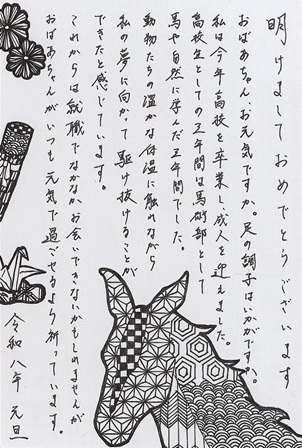 明けましておめでとうございます
おばあちゃん、お元気ですか。足の調子はいかがですか。
私は今年高校を卒業し、成人を迎えました。
高校生としての三年間は馬術部として
馬や自然に学んだ三年間でした。
動物たちの温かな体温に触れながら
私の夢に向かって駆け抜けることが
できたと感じています。
これからは就職でなかなかお会いできないかもしれませんが
おばあちゃんがいつも元気で過ごせるよう祈っています。
令和八年 元旦